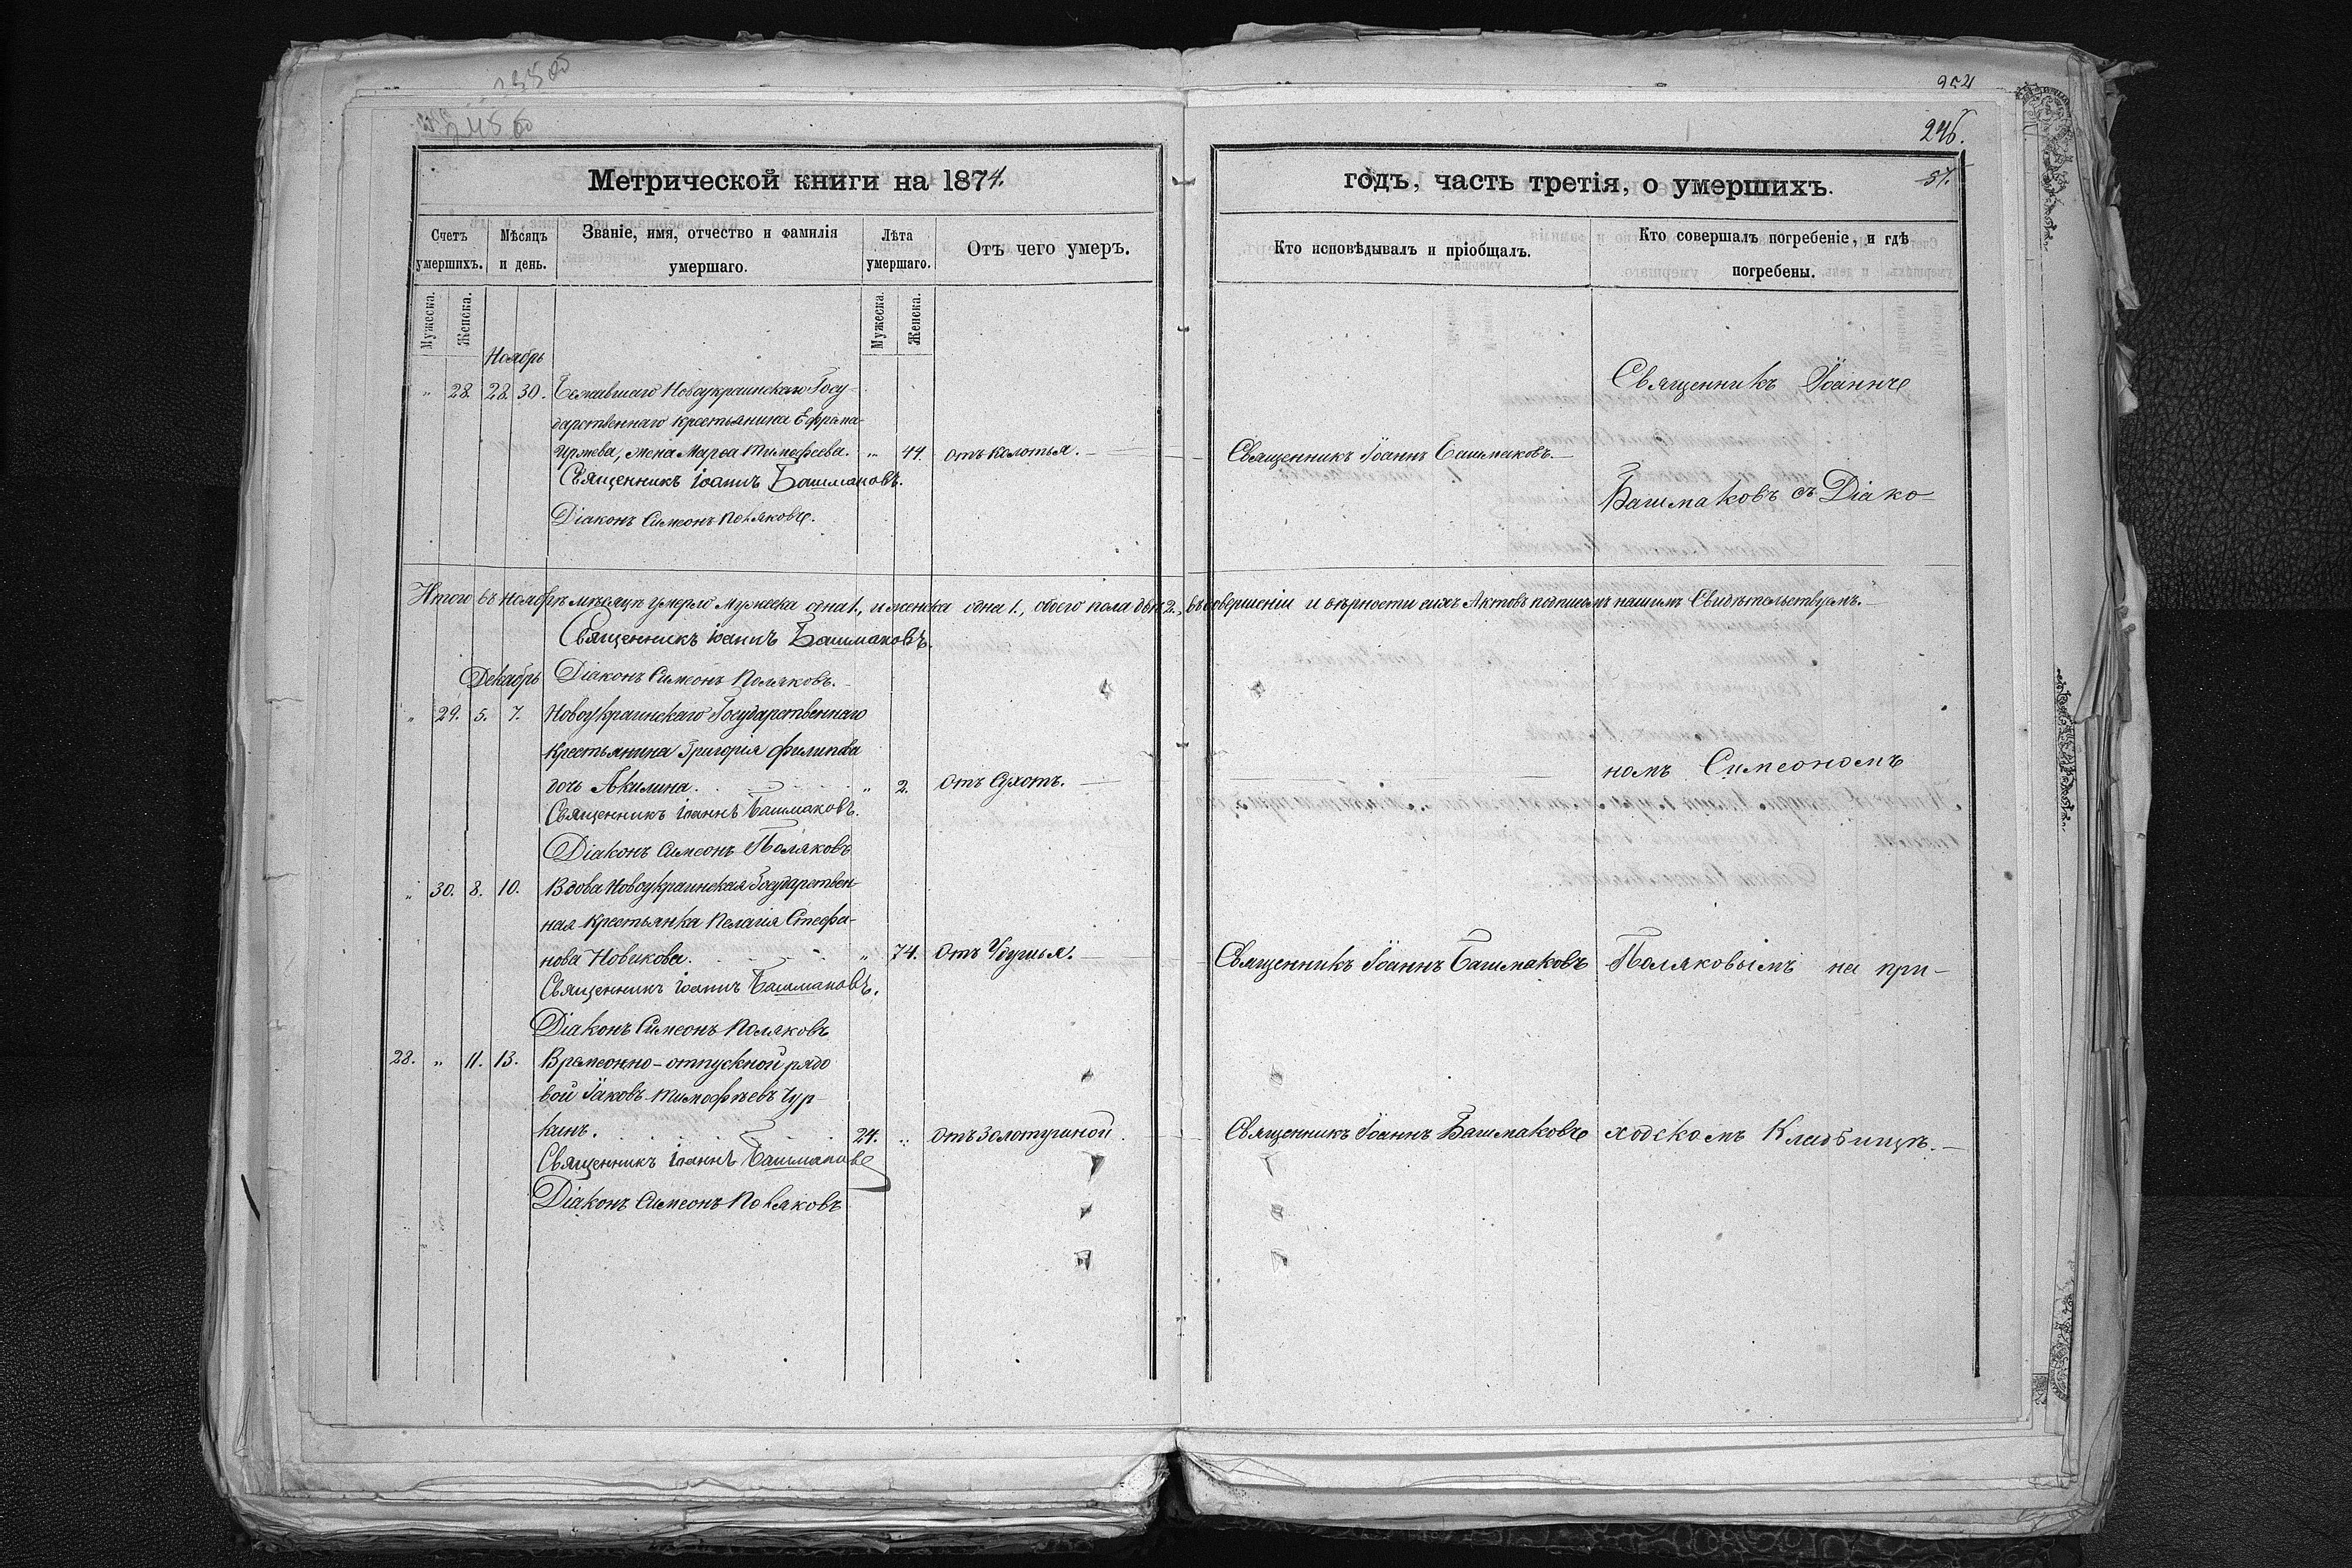 254
246.
57.
Метрической книги на 1874.
годъ, часть третія, о умершихъ.
Счетъ умершихъ.
Мѣсяцъ и день.
Званіе, имя, отчество и фамилія умершаго.
Лѣта умершаго.
Отъ чего умеръ.
Кто исповѣдывалъ и пріобщалъ.
Кто совершалъ погребеніе, и гдѣ погребены.
Мужеска.
Женска.
Мужеска.
Женска.
Ноябрь
" 28. 28. 30. Новоукраинскаго Госу-
дарственнаго крестьянина
жена Марѳа Тимофеева. " 44. отъ колотья. Священникъ Іоаннъ Башмаковъ.
Священникъ Іоаннъ Башмаковъ.
Діаконъ Симеонъ Поляковъ.
Священникъ Іоаннъ
Башмаковъ съ Діако
Итого въ ноябрѣ мѣсяцѣ умерло мужеска одна 1., и женска одна 1., обоего пола двѣ 2., въ совершеніи и вѣрности сихъ Актовъ подписомъ нашимъ Свидѣтельствуемъ.
Священникъ Іоаннъ Башмаковъ.
Декабрь Діаконъ Симеонъ Поляковъ.
" 29. 5. 7. Новоукраинскаго Государственнаго
крестьянина Григорія Филипова
дочь Акилина. " 2. Отъ Сухотъ. номъ Симеономъ
Священникъ Іоаннъ Башмаковъ.
Діаконъ Симеонъ Поляковъ
" 30. 8. 10. Вдова Новоукраинская Государствен-
ная крестьянка Пелагія Стефа-
нова Новикова. " 74. Отъ Удушья. Священникъ Іоаннъ Башмаковъ Поляковымъ на при-
Священникъ Іоаннъ Башмаковъ.
Діаконъ Симеонъ Поляковъ
28. " 11. 13. Временно-отпускной рядо
вой Іаковъ Тимофѣевъ Чур
кинъ. 24. " Отъ Золотушной Священникъ Іоаннъ Башмаковъ ходскомъ Кладбищѣ.
Священникъ Іоаннъ Башмаковъ
Діаконъ Симеонъ Поляковъ